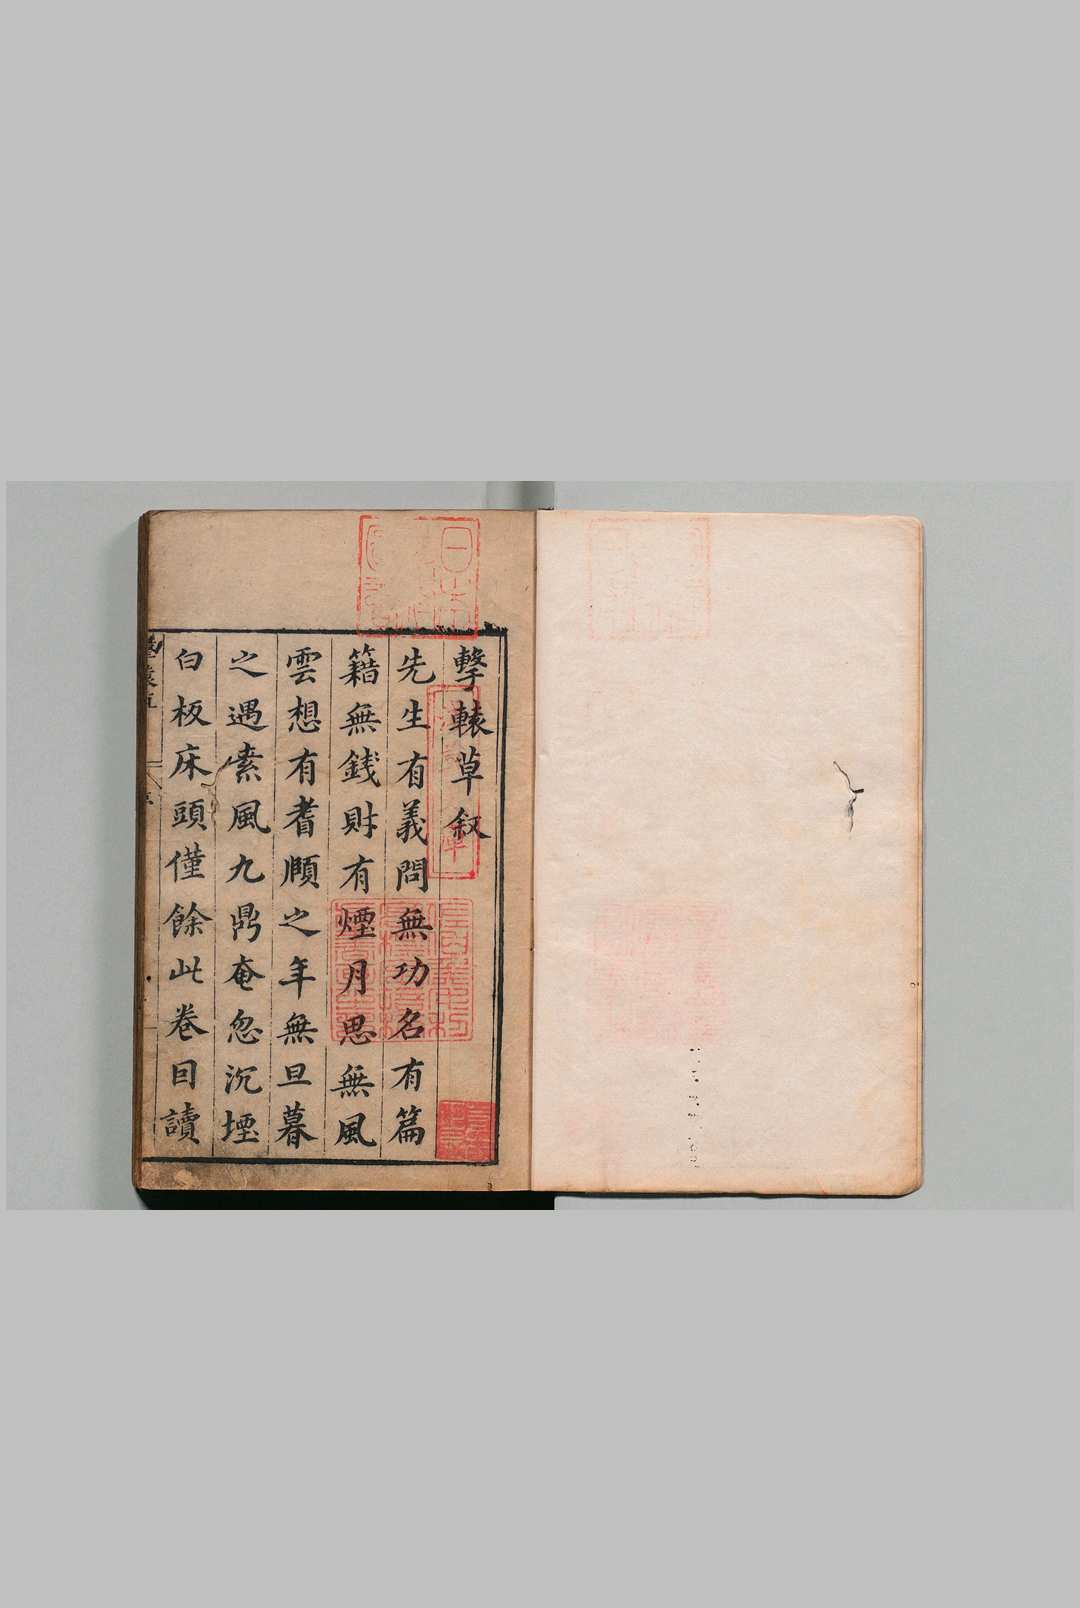 擊轅草叙
先生有義問無功名有篇
籍無錢財有煙月思無風
雲想有耆頤之年無旦暮
之遇素風九鼎奄忽沉堙
白板床頭僅餘此卷回讀